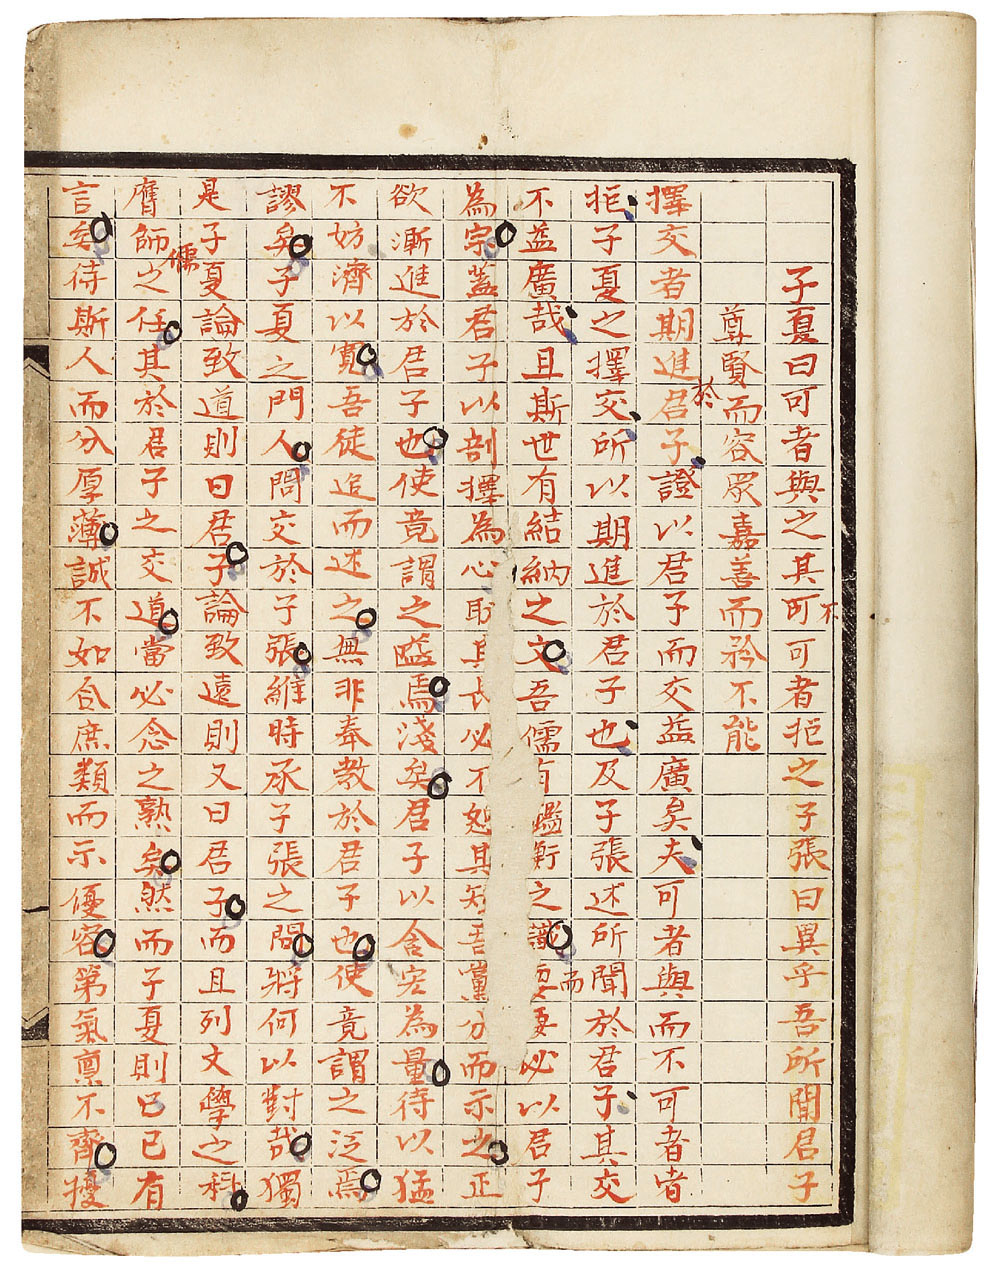 子夏曰可者與之其不可可者拒之子張曰異乎吾所聞君子
尊賢而容眾嘉善而矜不能
擇交者期進於君子證以君子而交益廣矣夫可者與而不可者者
拒子夏之擇交所以期進於君子也及子張述所聞於君子其交
不益廣哉且斯世有結納之文吾儒有鑑衡之識而必以君子
為宗蓋君子以剖擇為心取其長必不恕其短吾黨分而示之正
欲漸進於君子也使竟謂之隘焉淺矣君子以含宏為量待以猛
不妨濟以寬吾徒追而述之無非奉教於君子也使竟謂之泛焉
謬矣子夏之門人問交於子張維時承子張之問將何以對哉獨
是子夏儒論致道則曰君子論致遠則又曰君子而且列文學之科
膺師之任其於君子之交道當必念之熟矣然而子夏則已已有
言矣待斯人而分厚薄誠不如合庶類而示優容第氣稟不齊擾